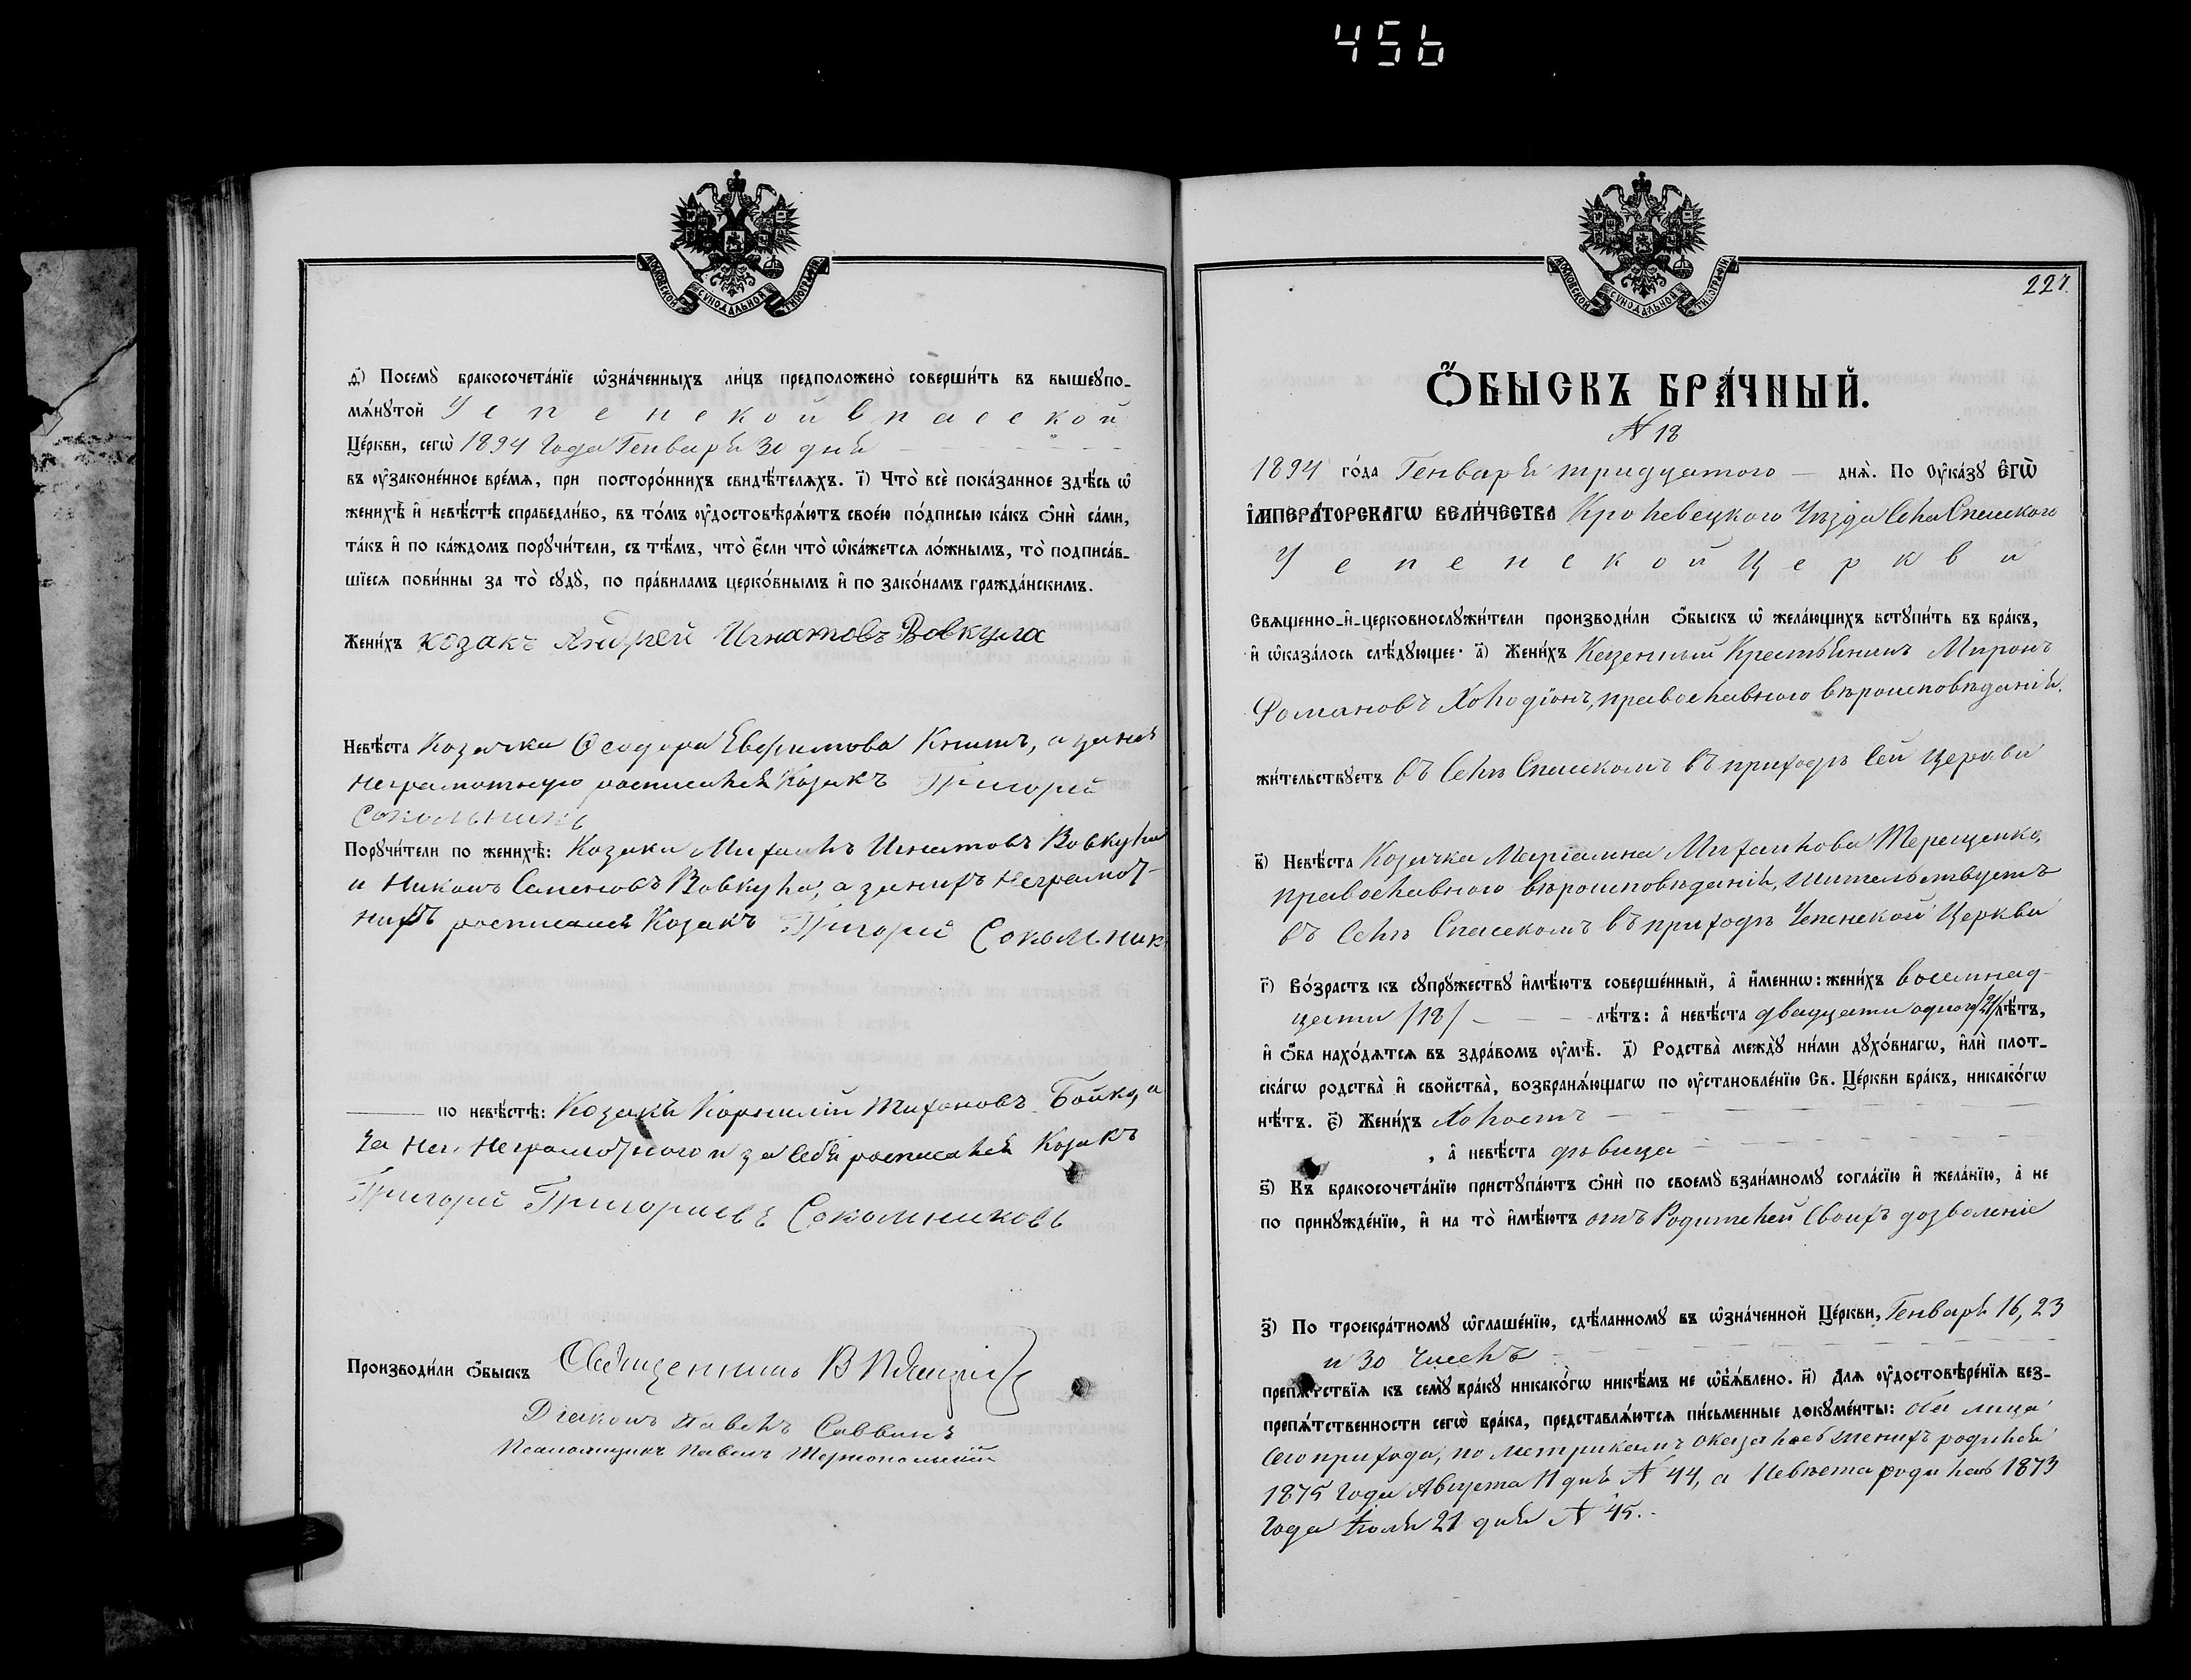 456
МОСКОВСКОЙ СУНОДАЛЬНОЙ ТИПОГРАФІИ
д҃) Посемꙋ̀ бракосочета́нїе ѡ҆зна́ченныхъ ли́цъ предположено̀ соверши́ть въ вышеꙋпо-
мѧ́нꙋтой Успенской Спасской
Це́ркви, сегѡ̀ 1894 года Генваря 30 дня
въ ᲂу҆законе́нное вре́мѧ, при посторо́ннихъ свидѣ́телѧхъ. і҃) Что̀ всѐ пока́занное здѣ́сь ѡ҆
женихѣ̀ и҆ невѣ́стѣ справедли́во, въ то́мъ ᲂу҆достовѣрѧ́ютъ свое́ю по́дписью ка́къ ѻ҆нѝ са́ми,
та́къ и҆ по ка́ждомъ порꙋчи́тели, съ тѣ́мъ, что̀ є҆́сли что̀ ѡ҆ка́жетсѧ ло́жнымъ, то̀ подписа́в-
шїесѧ пови́нны за то̀ сꙋдꙋ̀, по пра́виламъ церко́внымъ и҆ по зако́намъ гражда́нскимъ.
Жени́хъ козакъ Андрей Игнатовъ Вовкула
Невѣ́ста Козачка Ѳеодора Евфимова Книшъ, а за нея
неграмотную росписался Козакъ Григорій
Сокольникъ
Порꙋчи́тели по женихѣ̀: Козаки Михаилъ Игнатовъ Вовкула
и Никонъ Семеновъ Вовкула, а за нихъ неграмот-
ныхъ росписался Козакъ Григорій Сокольник
по невѣ́стѣ: Козакъ Корнилій Тихоновъ Бойко, а
за него неграмотного и за себя росписался Козакъ
Григорій Григориевъ Сокольниковъ
Производи́ли ѻ҆́быскъ Священникъ В
Діаконъ Павелъ Саввинъ
Псаломщикъ Павелъ
МОСКОВСКОЙ СУНОДАЛЬНОЙ ТИПОГРАФІИ
227.
Ѻ҆́БЫСКЪ БРА́ЧНЫЙ.
№ 18
1894 го́да Генваря тридцатого днѧ̀. По ᲂу҆ка́зꙋ Є҆ГѠ̀
І҆МПЕРА́ТОРСКАГѠ ВЕЛИ́ЧЕСТВА Кролевецкого Уѣзда Села Спасского
Успенской Церкви
Свѧщенно-и҆-церковнослꙋжи́тели производи́ли ѻ҆́быскъ ѡ҆ жела́ющихъ встꙋпи́ть въ бра́къ,
и҆ ѡ҆каза́лось слѣ́дꙋющее: а҃) Жени́хъ Казенный Крестьянинъ Миронъ
Романовъ Холодіонъ, православного вѣроисповѣданія,
жи́тельствꙋетъ въ Селѣ Спасскомъ въ приходѣ сей Церкви
в҃) Невѣ́ста Козачка Маріамна Михаилова Терещенко,
православного вѣроисповѣданія, жительствуетъ
въ Селѣ Спасскомъ въ приходѣ Успенской Церкви
г҃) Во́зрастъ къ сꙋпрꙋ́жествꙋ и҆мѣ́ютъ соверше́нный, а҆ и҆́меннѡ: жени́хъ восемнад-
цати /18/ лѣ́тъ: а҆ невѣ́ста двадцати одного /21/ лѣ́тъ,
и҆ ѻ҆́ба нахо́дѧтсѧ въ здра́вомъ ᲂу҆мѣ̀. д҃) Родства̀ междꙋ̀ ни́ми дꙋхо́внагѡ, и҆лѝ плот-
ска́гѡ родства̀ и҆ свойства̀, возбранѧ́ющагѡ по ᲂу҆становле́нїю Св. Це́ркви бра́къ, никако́гѡ
нѣ́тъ. є҃) Жени́хъ Холостъ
, а҆ невѣ́ста дѣвица
ѕ҃) Къ бракосочета́нїю пристꙋпа́ютъ ѻ҆нѝ по своемꙋ̀ взаи́мномꙋ согла́сїю и҆ жела́нїю, а҆ не
по принꙋжде́нїю, и҆ на то̀ и҆мѣ́ютъ отъ Родителей своихъ дозволеніе
з҃) По троекра́тномꙋ ѡ҆глаше́нїю, сдѣ́ланномꙋ въ ѡ҆зна́ченной Це́ркви, Генваря 16, 23
и 30 числъ
препѧ́тствїѧ къ семꙋ̀ бра́кꙋ никако́гѡ никѣ́мъ не ѡ҆б̾ѧ́влено. и҃) Длѧ ᲂу҆достовѣре́нїѧ без-
препѧ́тственности сегѡ̀ бра́ка, представлѧ́ютсѧ пи́сьменные докꙋме́нты: оба лица
сего прихода, по метрикамъ оказалось женихъ родился
1875 года Августа 11 дня № 44, а Невѣста родилась 1873
года Іюля 21 дня № 45.